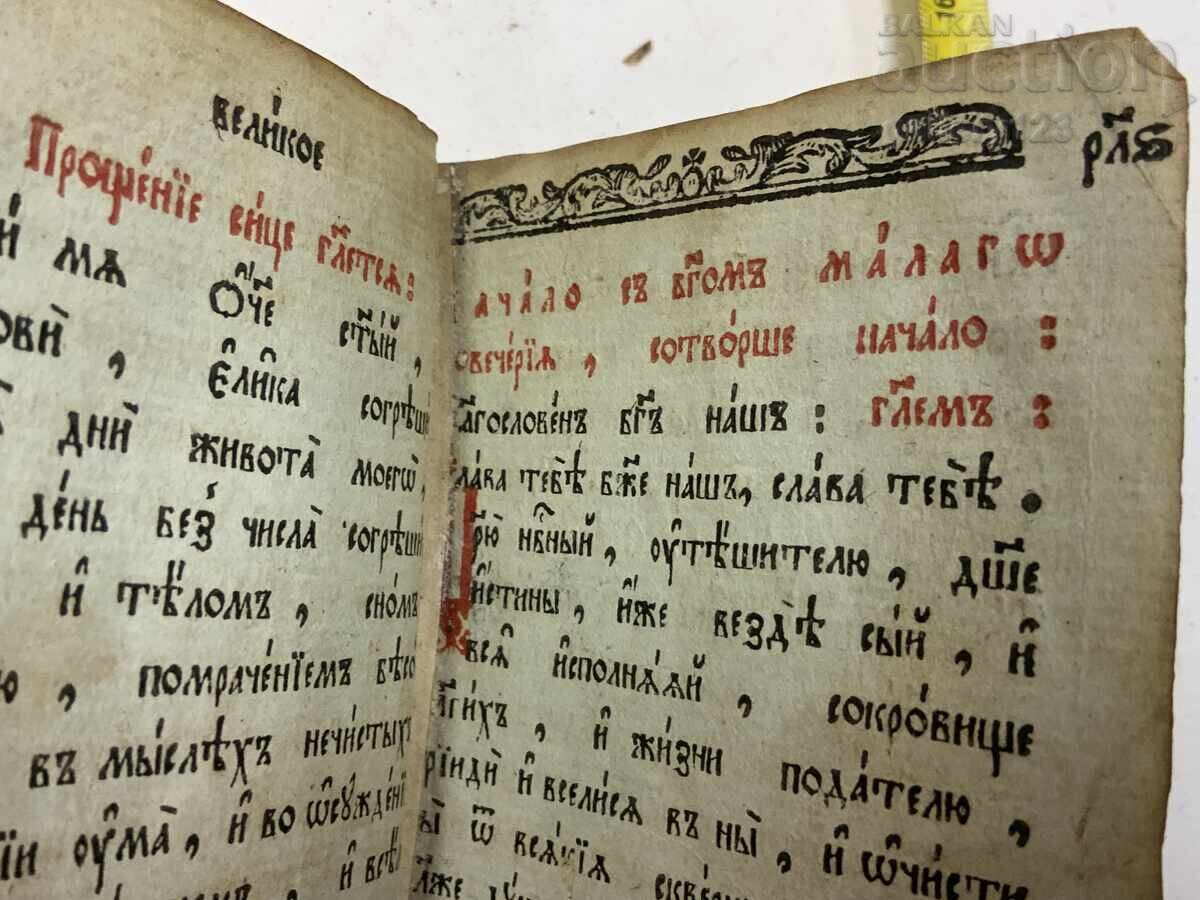 великое
Проще́нїе си́це гл҃етсѧ:
мѧ Ѻ҆́ч҃е ст҃ы́й,
є҆ли̑ка согрѣши́
дни̑ живота̀ моегѡ̀,
де́нь без̾ числа̀ согрѣши́
и҆ тѣ́ломъ, сномъ
помраче́нїемъ бѣсо
въ мы́слехъ нечи́стыхъ
оума̀, и҆ во ѡ҆сꙋжде́нї
и҆ всѣ̀
рл҃ѕ
ача́ло съ бг҃омъ ма́лагѡ
овече́рїѧ, сотво́рше нача́ло:
лагослове́нъ бг҃ъ на́шъ: гл҃емъ:
ла́ва тебѣ̀ бж҃е на́шъ, сла́ва тебѣ̀.
рю̀ нб҃ный, оутѣ́шителю, дш҃е
и҆́стины, и҆́же вездѣ̀ сы́й, и҆
всѧ̑ и҆сполнѧ́ѧй, сокро́вище
лаги́хъ, и҆ жи́зни пода́телю,
рїидѝ и҆ всели́сѧ въ ны̀, и҆ ѡ҆чи́сти
ны̀ ѿ всѧ́кїѧ скве́р